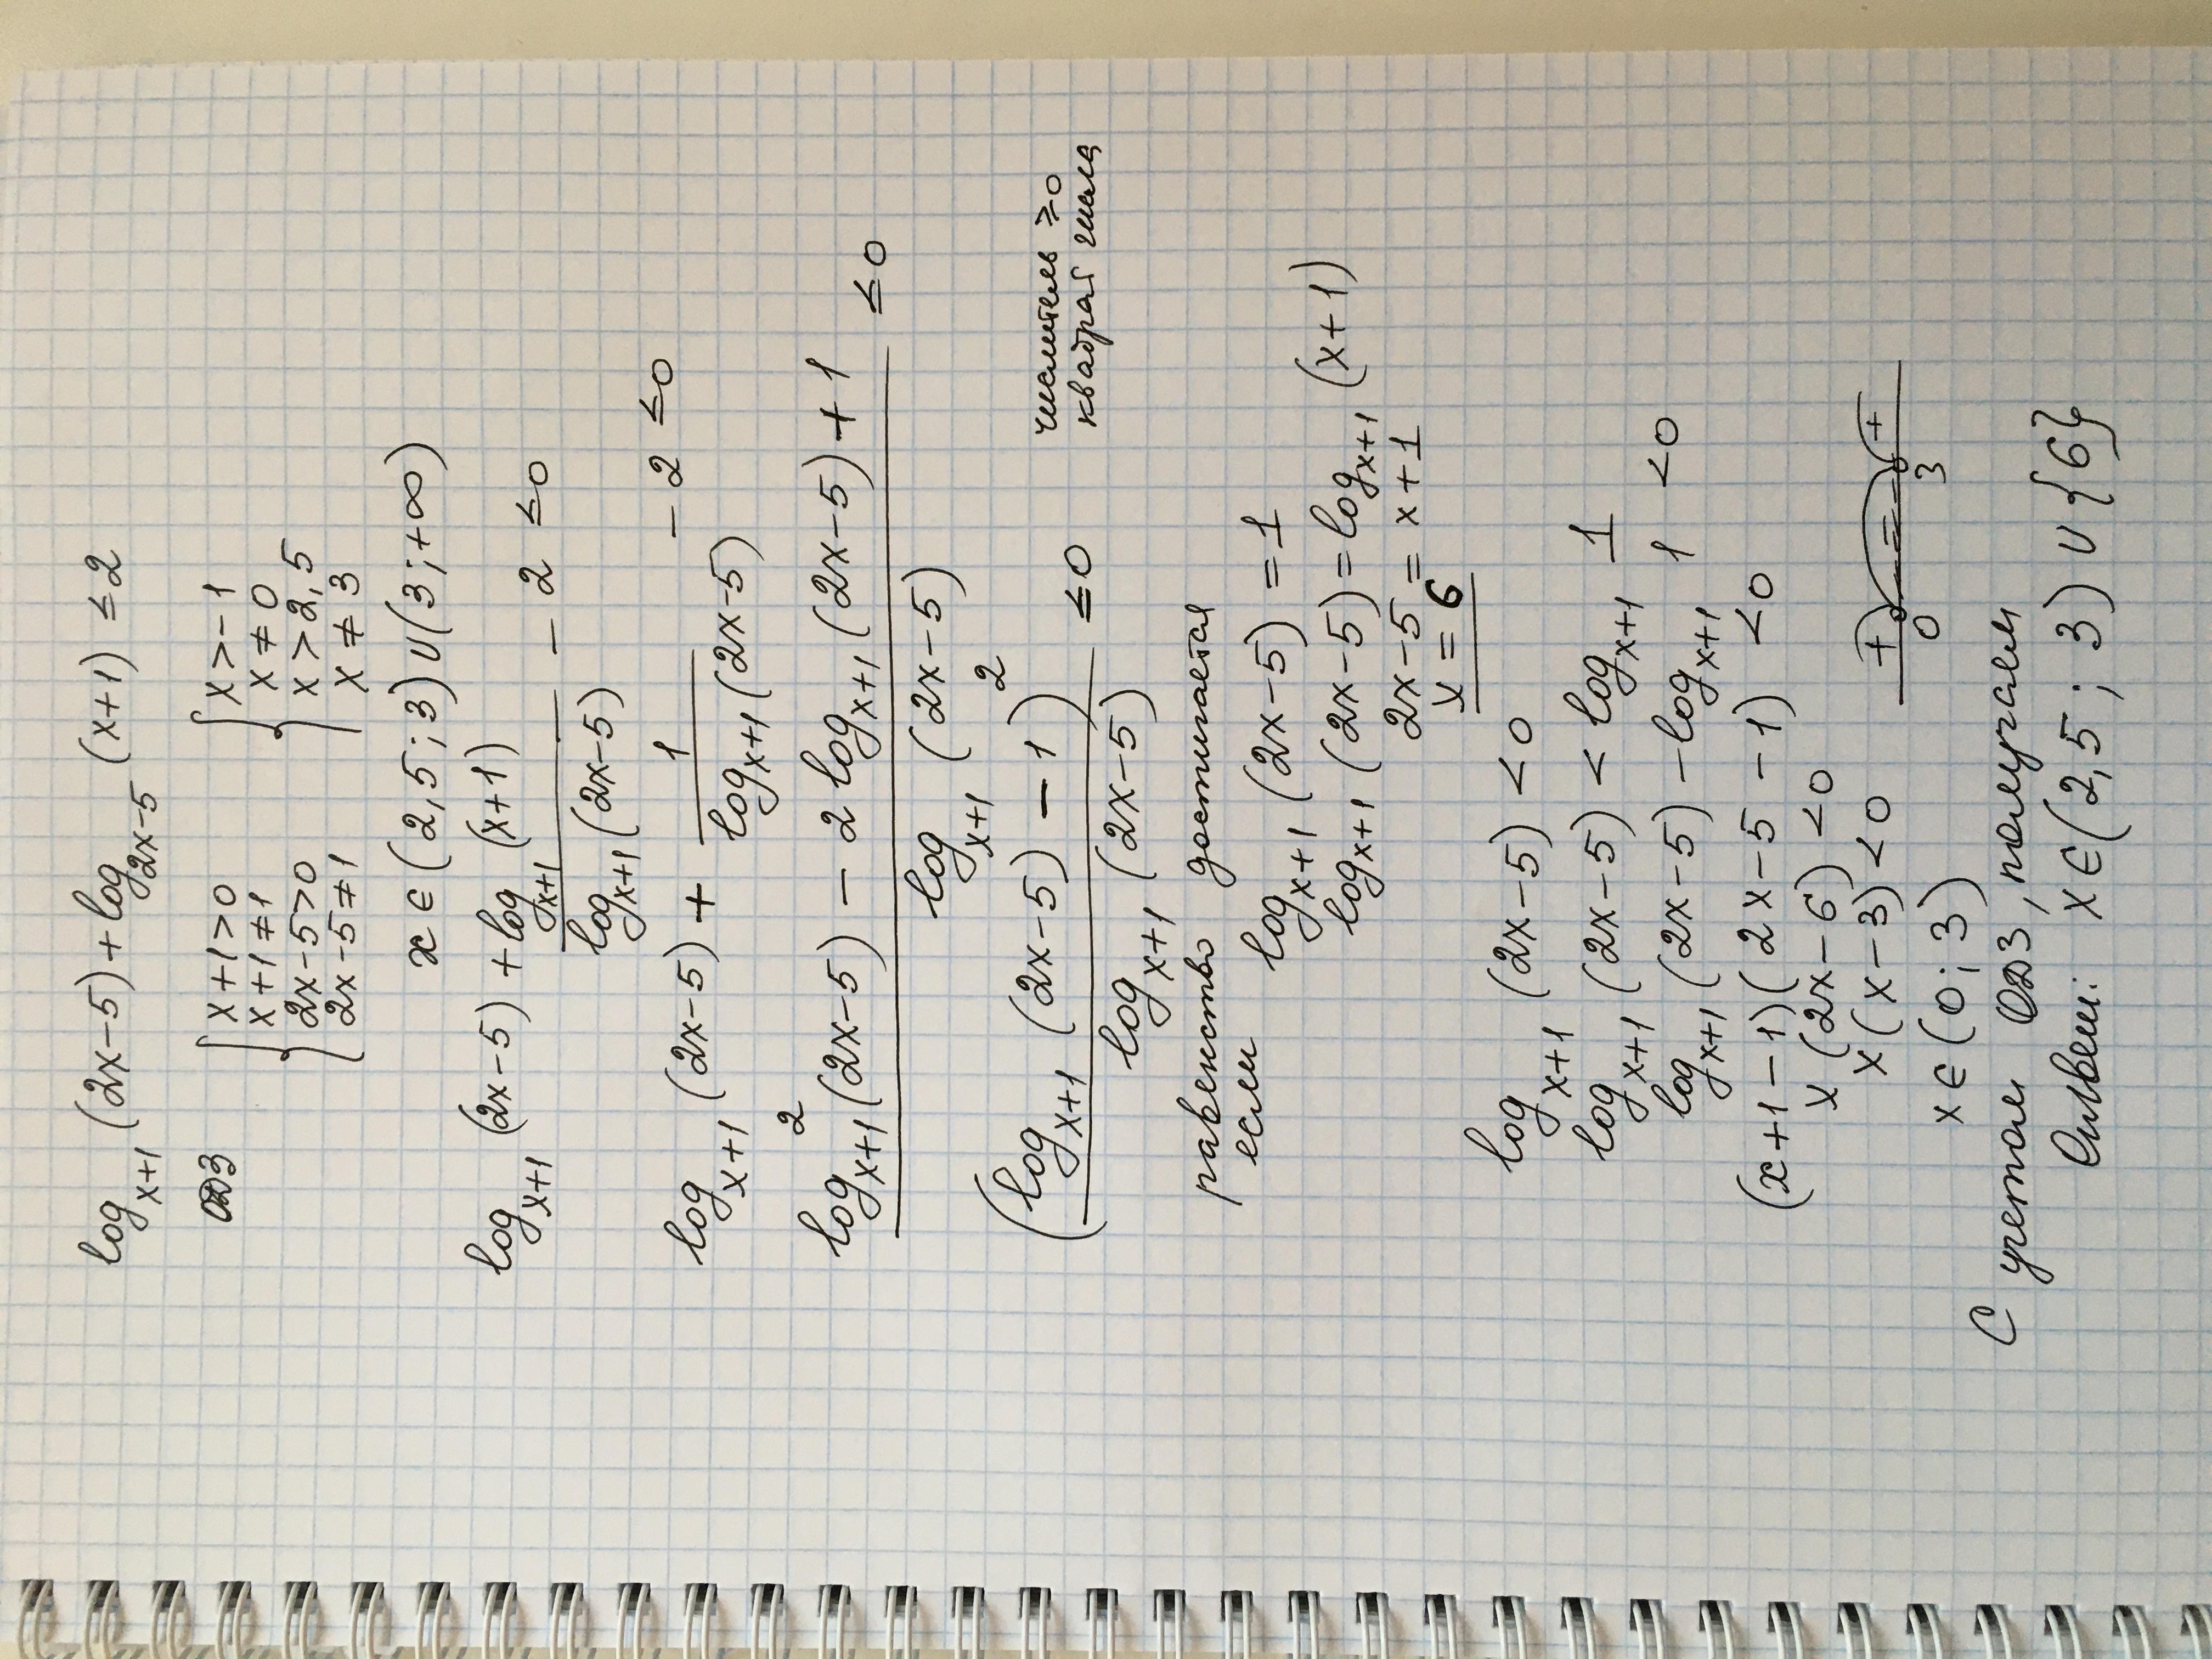 log_{x+1}(2x-5)+log_{2x-5}(x+1) ≤ 2
ОДЗ { x+1>0 { x>-1
x+1≠1 x≠0
2x-5>0 x>2,5
2x-5≠1 x≠3
x∈(2,5;3)∪(3;+∞)
log_{x+1}(2x-5) + \frac{log_{x+1}(x+1)}{log_{x+1}(2x-5)} - 2 ≤0
log_{x+1}(2x-5) + \frac{1}{log_{x+1}(2x-5)} - 2 ≤0
\frac{log^2_{x+1}(2x-5) - 2log_{x+1}(2x-5)+1}{log_{x+1}(2x-5)} ≤0
\frac{(log_{x+1}(2x-5)-1)^2}{log_{x+1}(2x-5)} ≤0
числитель ≥0
квадрат числа
равенство достигается
если
log_{x+1}(2x-5) = 1
log_{x+1}(2x-5) = log_{x+1}(x+1)
2x-5 = x+1
x = 6
log_{x+1}(2x-5) < 0
log_{x+1}(2x-5) < log_{x+1} 1
log_{x+1}(2x-5) - log_{x+1} 1 < 0
(x+1-1)(2x-5-1) < 0
x(2x-6) < 0
x(x-3) < 0
+ - +
0 3
x∈(0;3)
С учетом ОДЗ, получаем
Ответ: x∈(2,5;3)∪{6}